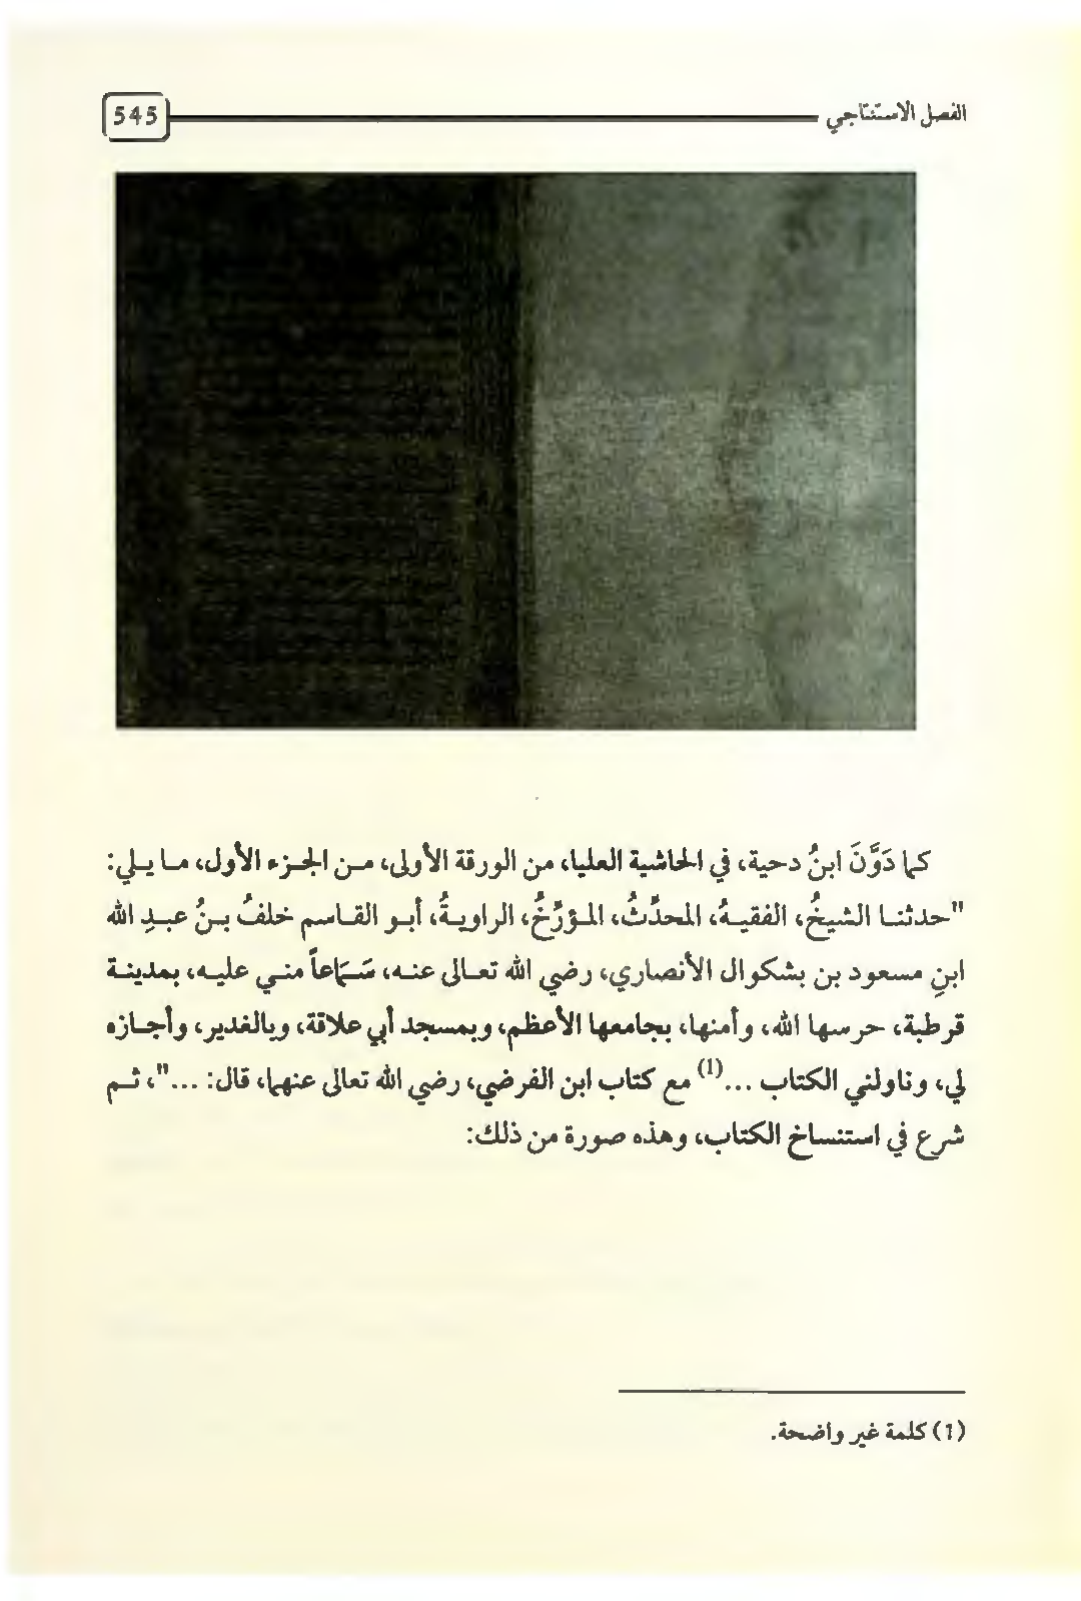 الفصل الاستنتاجي 545
كما دَوَّنَ ابنُ دحية، في الحاشية العليا، من الورقة الأولى، من الجزء الأول، ما يلي:
"حدثنا الشيخُ، الفقيهُ، المحدِّثُ، المؤرِّخُ، الراويةُ، أبو القاسم خلفُ بنُ عبدِ الله
ابنِ مسعود بن بشكوال الأنصاري، رضي الله تعالى عنه، سَمَاعاً مني عليه، بمدينة
قرطبة، حرسها الله، وأمنها، بجامعها الأعظم، وبمسجد أبي علاقة، وبالغدير، وأجازه
لي، وناولني الكتاب ...(1) مع كتاب ابن الفرضي، رضي الله تعالى عنهما، قال: ..."، ثم
شرع في استنساخ الكتاب، وهذه صورة من ذلك:
(1) كلمة غير واضحة.